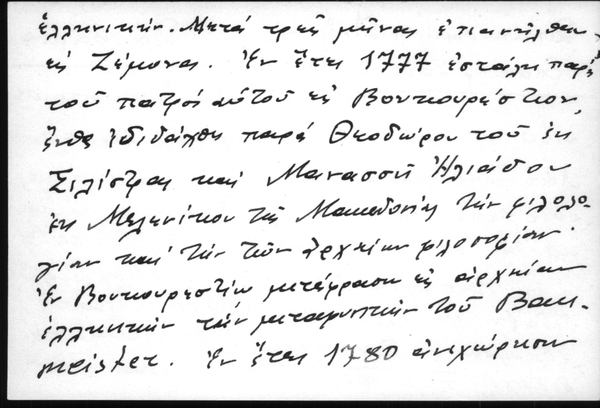 ἑλληνικήν. Μετά τρεῖς μῆνας ἐπανῆλθεν
εἰς Ζέμονας. Ἐν ἔτει 1777 ἐστάλη παρά
τοῦ πατρός αὐτοῦ εἰς Βουκουρέστιον,
ἔνθα ἐδιδάχθη παρά Θεοδώρου τοῦ ἐκ
Σιλίστρας καί Μανασσῆ Ἡλιάδου
ἐκ Μελενίκου τῆς Μακεδονίας τήν φιλολο-
γίαν καί τήν τῶν ἀρχαίων φιλοσοφίαν.
Ἐν Βουκουρεστίῳ μετέφρασεν εἰς ἀρχαίαν
ἑλληνικήν τήν μεταφυσικήν τοῦ Bau-
meister. Ἐν ἔτει 1780 ἀνεχώρησεν